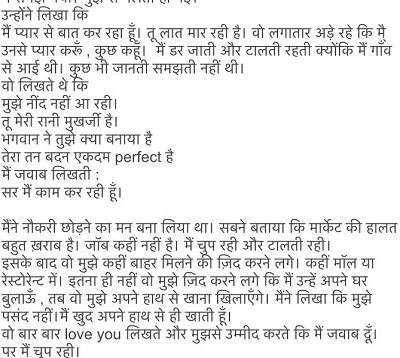 उन्होंने लिखा कि
मैं प्यार से बात कर रहा हूँ। तू लात मार रही है। वो लगातार अड़े रहे कि मैं
उनसे प्यार करुँ , कुछ कहूँ। मैं डर जाती और टालती रहती क्योंकि मैं गाँव
से आई थी। कुछ भी जानती समझती नहीं थी।
वो लिखते थे कि
मुझे नींद नहीं आ रही।
तू मेरी रानी मुखर्जी है।
भगवान ने तुझे क्या बनाया है
तेरा तन बदन एकदम perfect है
मैं जवाब लिखती :
सर मैं काम कर रही हूँ।
मैंने नौकरी छोड़ने का मन बना लिया था। सबने बताया कि मार्केट की हालत
बहुत ख़राब है। जॉब कहीं नहीं है। मैं चुप रही और टालती रही।
इसके बाद वो मुझे कहीं बाहर मिलने की ज़िद करने लगे। कहीं मॉल या
रेस्टोरेन्ट में। इतना ही नहीं वो मुझे ज़िद करने लगे कि मैं उन्हें अपने घर
बुलाऊँ , तब वो मुझे अपने हाथ से खाना खिलाएँगे। मैंने लिखा कि मुझे
पसंद नहीं।मैं खुद अपने हाथ से ही खाती हूँ।
वो बार बार love you लिखते और मुझसे उम्मीद करते कि मैं जवाब दूँ।
पर मैं चुप रही।